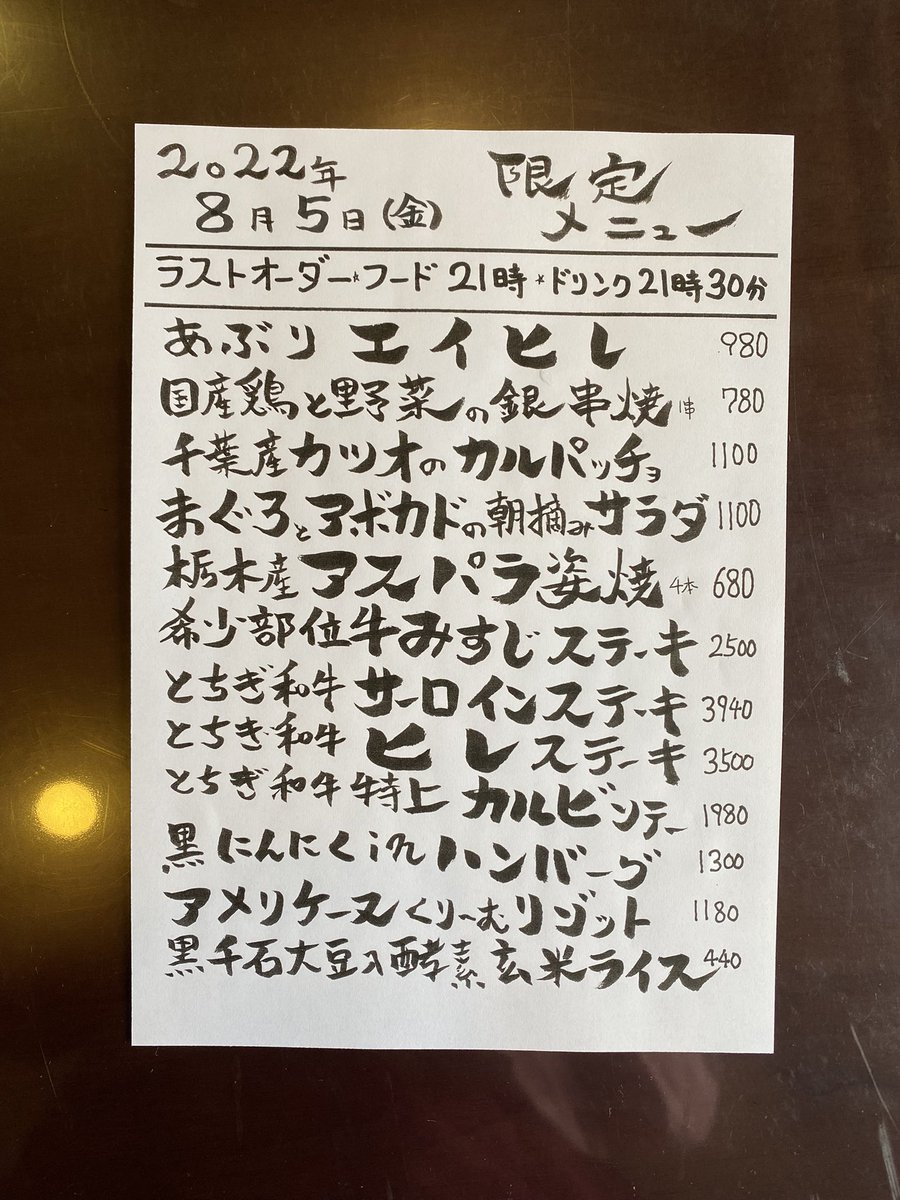 2022年 限定
8月5日(金) メニュー
ラストオーダー☆フード 21時 ☆ドリンク21時30分
あぶり エイヒレ 980
国産鶏と野菜の銀串焼 1串 780
千葉産カツオのカルパッチョ 1100
まぐろとアボカドの朝摘みサラダ 1100
栃木産アスパラ姿焼 4本 680
希少部位牛みすじステーキ 2500
とちぎ和牛 サーロインステーキ 3940
とちぎ和牛 ヒレステーキ 3500
とちぎ和牛特上 カルビソテー 1980
黒にんにくinハンバーグ 1300
アメリケーヌくりーむリゾット 1180
黒千石大豆入酵素玄米ライス 440